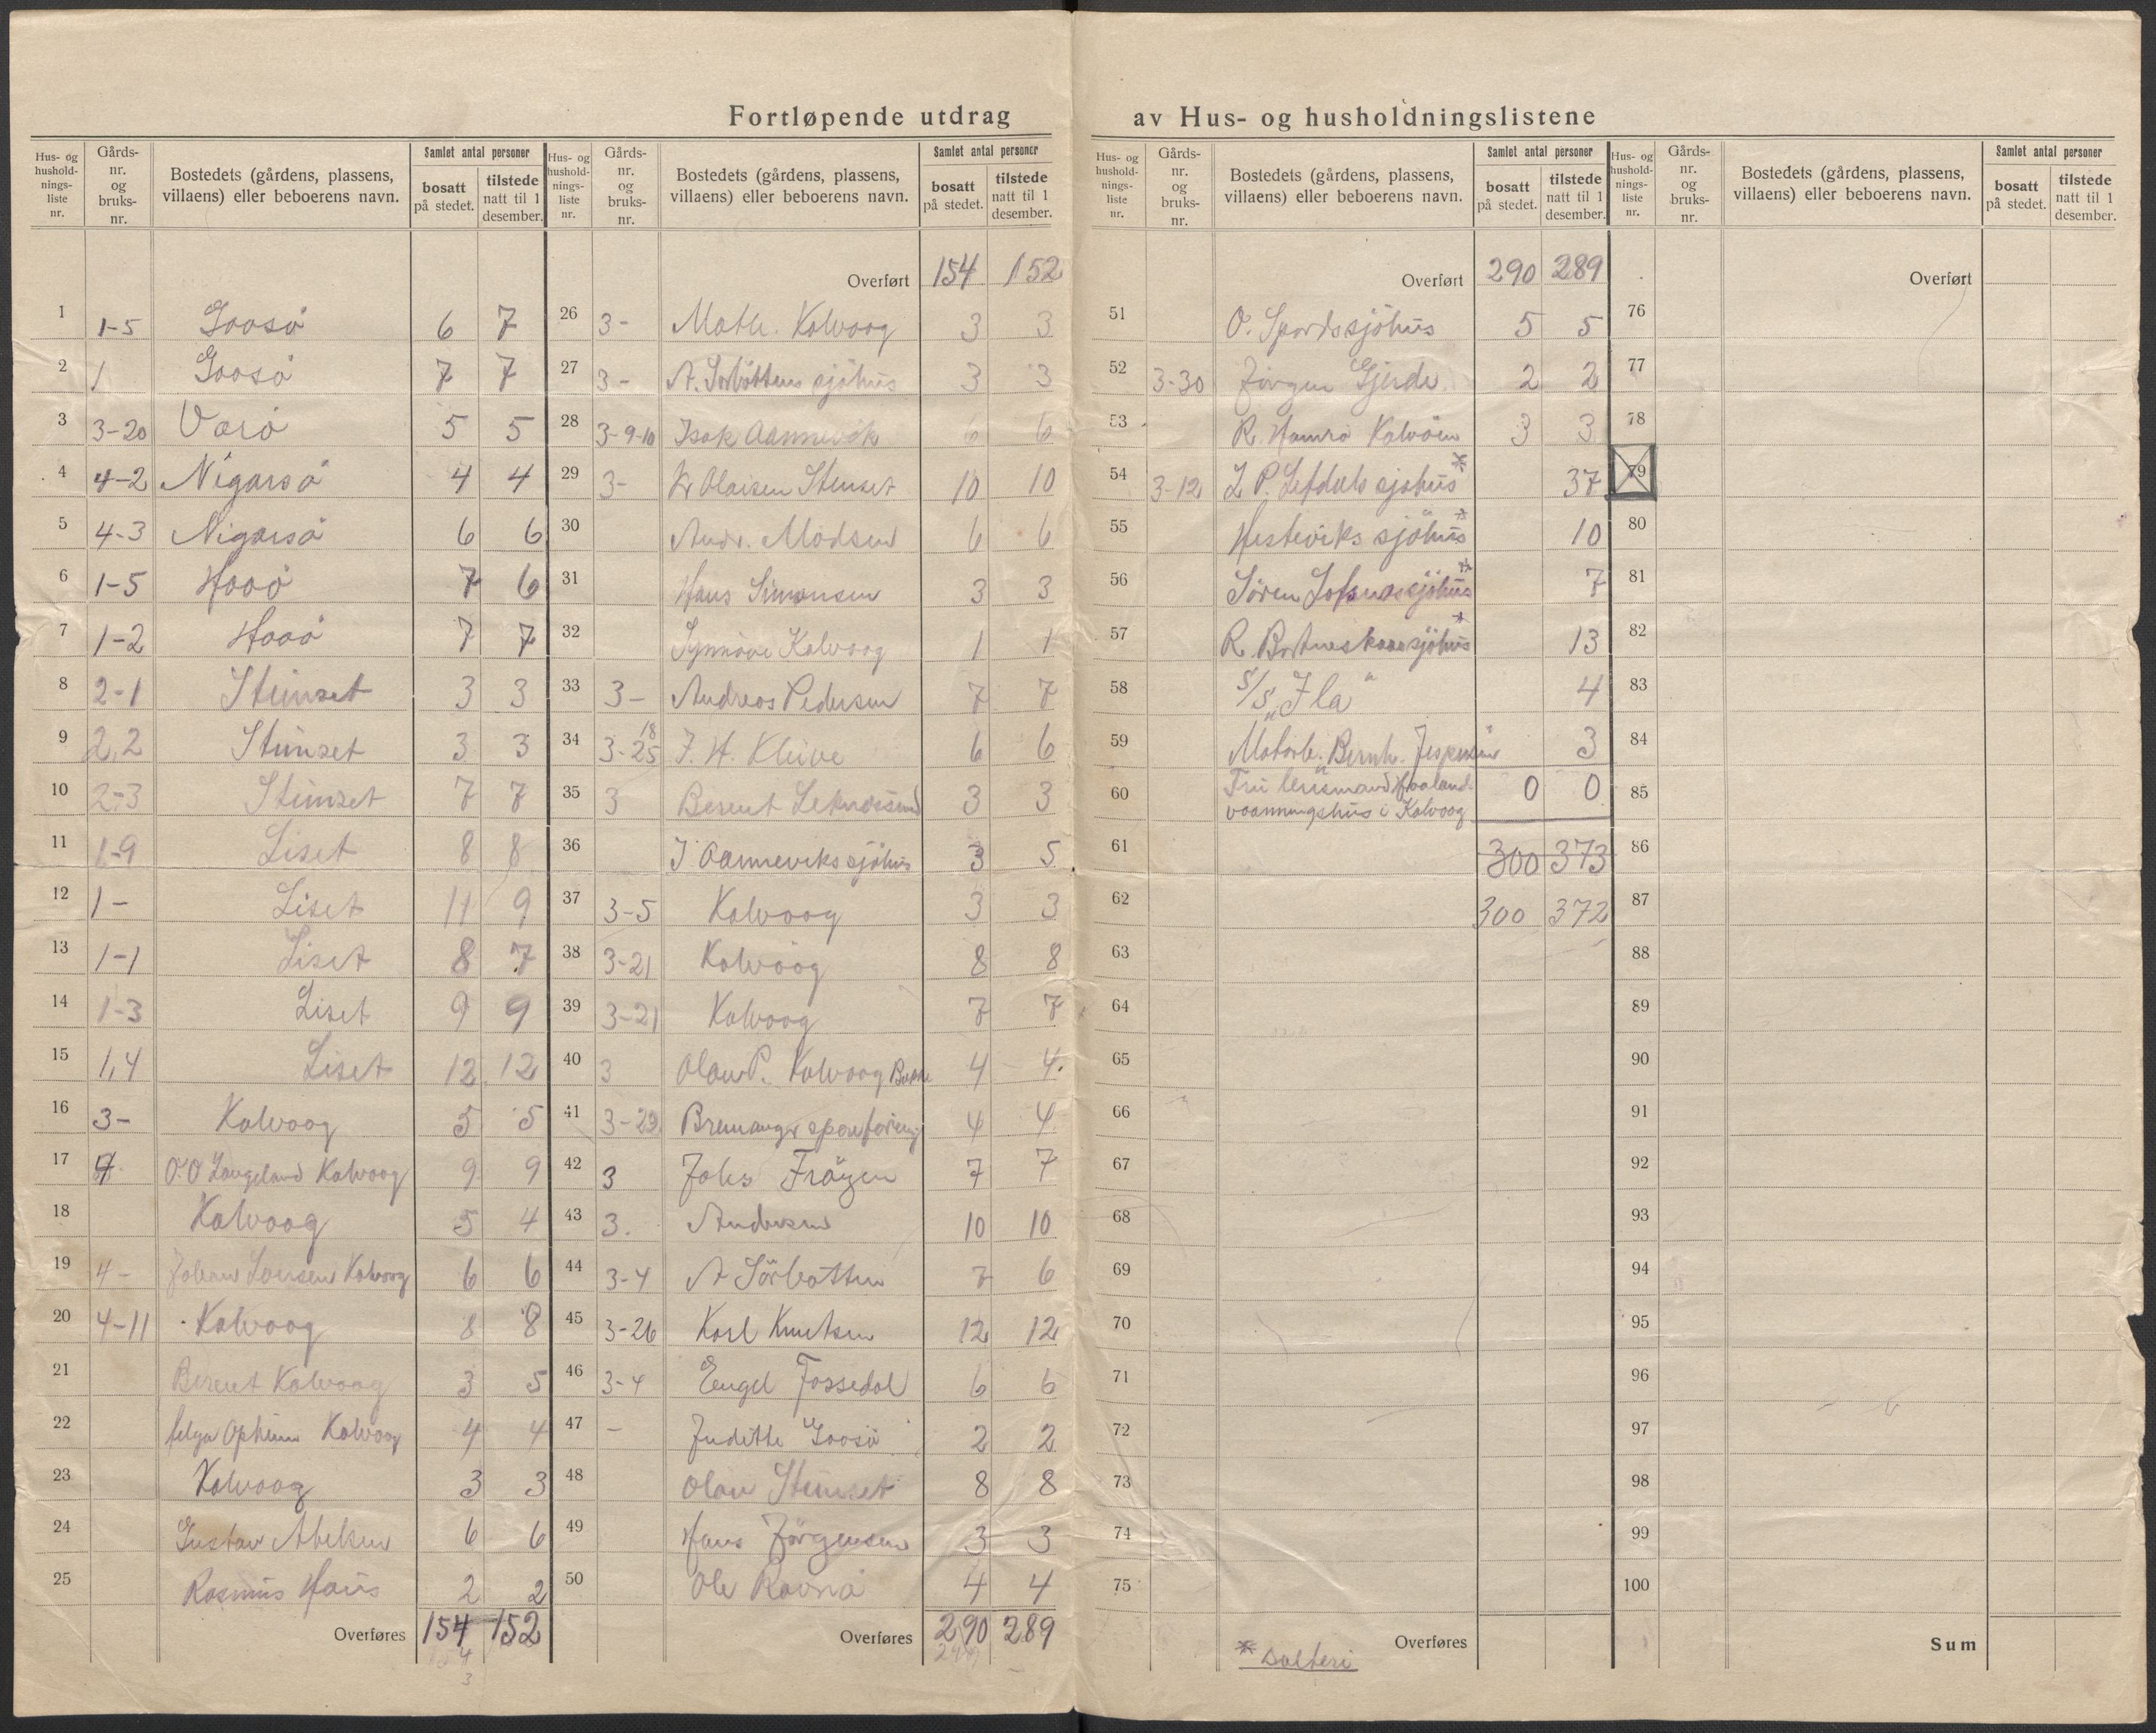 Fortløpende utdrag av Hus- og husholdningslistene
Hus- og hushold-nings-liste nr. | Gårds-nr. og bruks-nr. | Bostedets (gårdens, plassens, villaens) eller beboerens navn. | Samlet antal personer | bosatt på stedet. | tilstede natt til 1 desember.
1 1-5 Gaasø 6 7
2 1 Gaasø 7 7
3 3-20 Varø 5 5
4 4-2 Nigarsø 4 4
5 4-3 Nigarsø 6 6
6 1-5 Haaø 7 6
7 1-2 Haaø 7 7
8 2-1 Steinset 3 3
9 2,2 Steinset 3 3
10 2-3 Steinset 7 7
11 1-9 Liset 8 8
12 1- Liset 11 9
13 1-1 Liset 8 7
14 1-3 Liset 9 9
15 1,4 Liset 12 12
16 3- Kalvaag 5 5
17 O.O Langeland Kalvaag 9 9
18 Kalvaag 5 4
19 4- Johan Larsen Kalvaag 6 6
20 4-11 Kalvaag 8 8
21 Berent Kalvaag 3 5
22 Helga Opheim Kalvaag 4 4
23 Kalvaag 3 3
24 Gustav Abelsen 6 6
25 Rasmus Haus 2 2
Overføres 154 152
Hus- og hushold-nings-liste nr. | Gårds-nr. og bruks-nr. | Bostedets (gårdens, plassens, villaens) eller beboerens navn. | Samlet antal personer | bosatt på stedet. | tilstede natt til 1 desember.
Overført 154 152
26 3- Math. Kalvaag 3 3
27 3- A. Sørbøttens sjøhus 3 3
28 3-9-10 Isak Aannevik 6 6
29 3- Olaisen Steinset 10 10
30 Andr. Madsen 6 6
31 Hans Simonsen 3 3
32 Synnøve Kalvaag 1 1
33 3- Andreas Pedersen 7 7
34 3-25 18 J. H. Kleive 6 6
35 3 Berent Leknessund 3 3
36 J. Aanneviks sjøhus 3 5
37 3-5 Kalvaag 3 3
38 3-21 Kalvaag 8 8
39 3-21 Kalvaag 7 7
40 3 Olav P. Kalvaag 4 4
41 3-29 Bremanger 4 4
42 3 Johs Frøyen 7 7
43 3. Andersen 10 10
44 3-4 A Sørbotten 7 6
45 3-26 Karl Knutsen 12 12
46 3-4 Engel Fossedal 6 6
47 - Judithe Gaasø 2 2
48 Olav Steinset 8 8
49 Hans Jörgensen 3 3
50 Ole Ravnø 4 4
Overføres 290 289
Hus- og hushold-nings-liste nr. | Gårds-nr. og bruks-nr. | Bostedets (gårdens, plassens, villaens) eller beboerens navn. | Samlet antal personer | bosatt på stedet. | tilstede natt til 1 desember.
Overført 290 289
51 O. sjøhus 5 5
52 3-30 Jörgen Gjerde 2 2
53 R. Hamrø Kalvöen 3 3
54 3-12 L P. Lefdals sjøhus * 37
55 Hesteviks sjöhus * 10
56 Sören sjöhus * 7
57 R. sjöhus * 13
58 S/S „Ila" 4
59 Motorb. „Bernh. Jespersen" 3
60 Fru lensmand Haaland
vaaningshus i Kalvaag 0 0
61 300 373
62 300 372
63
64
65
66
67
68
69
70
71
72
73
74
75
Overføres
* Salteri
Hus- og hushold-nings-liste nr. | Gårds-nr. og bruks-nr. | Bostedets (gårdens, plassens, villaens) eller beboerens navn. | Samlet antal personer | bosatt på stedet. | tilstede natt til 1 desember.
Overført
76
77
78
79
80
81
82
83
84
85
86
87
88
89
90
91
92
93
94
95
96
97
98
99
100
Sum